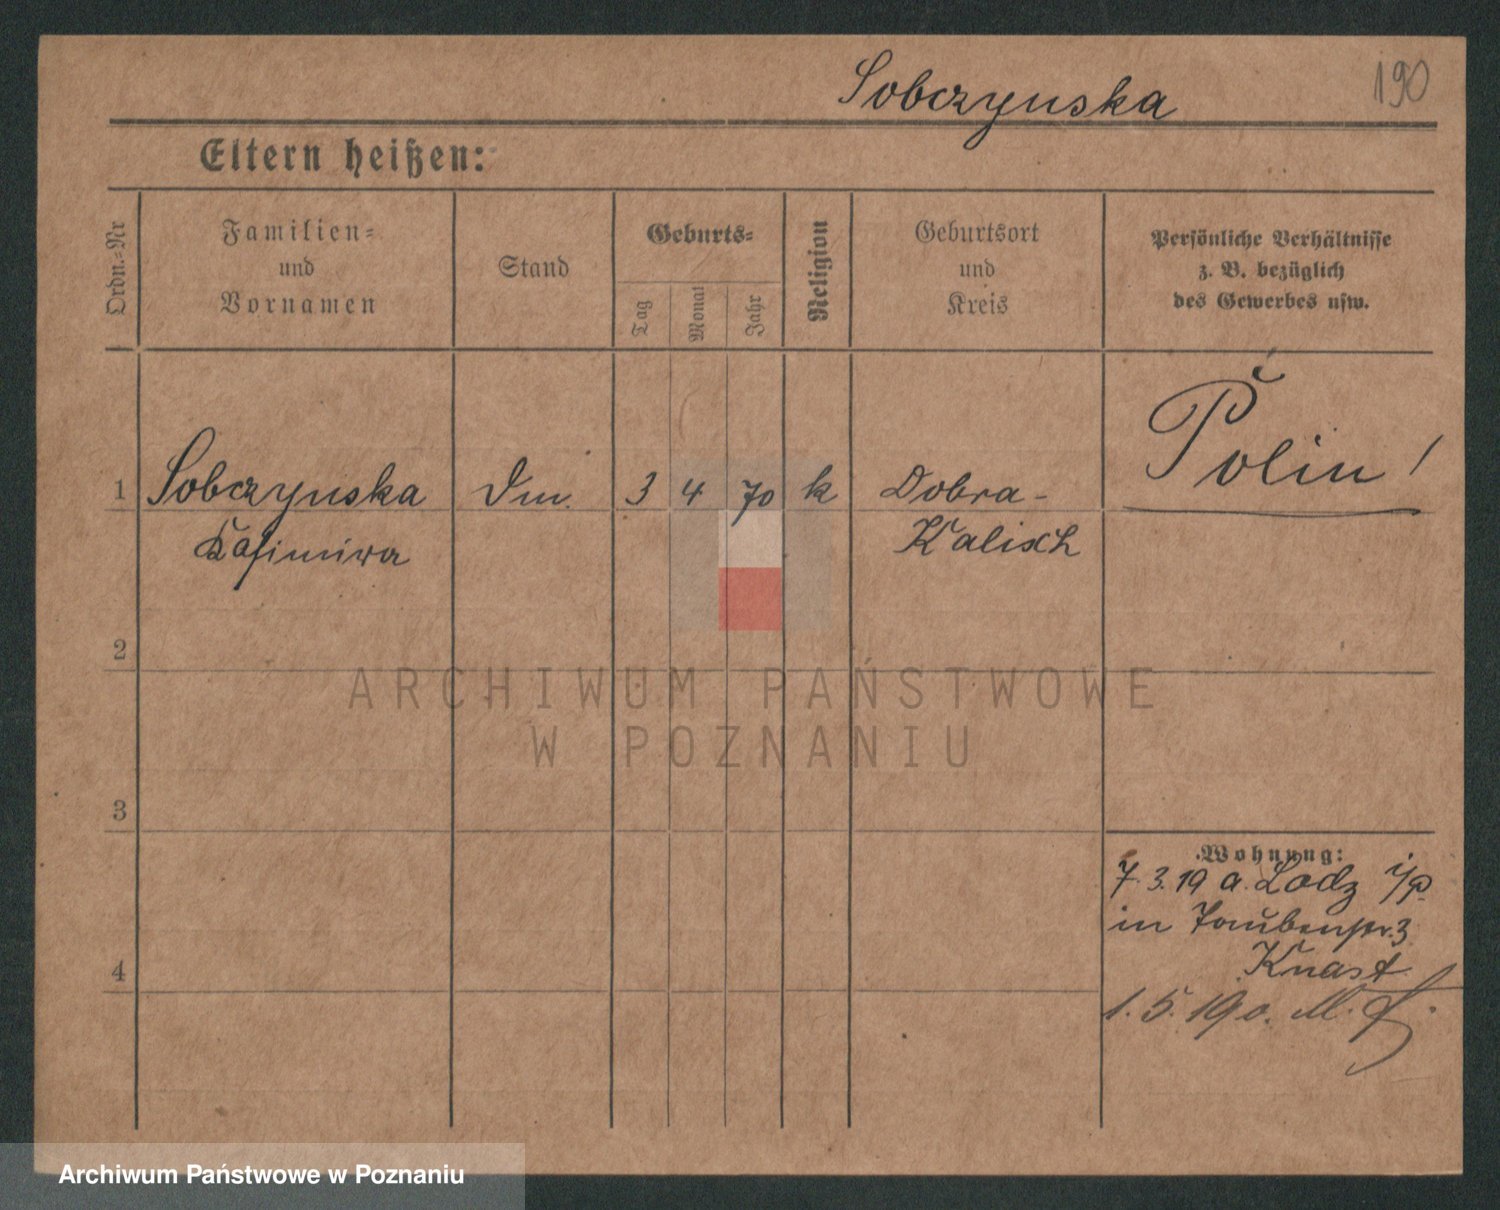 Sobczynska
190
Eltern heißen:
Ordn.-Nr
Familien-
und
Vornamen
Stand
Geburts-
Tag
Monat
Jahr
Religion
Geburtsort
und
Kreis
Persönliche Verhältnisse
z. B. bezüglich
des Gewerbes usw.
Polin!
1 Sobczynska 3 4 70 k Dobra-
Kasimira Kalisch
2
ARCHIWUM PAŃSTWOWE
W POZNANIU
3
Wohnung:
7.3.19 a. Lodz i/P.
in Taubenstr. 3
Knast
4
1.5.19
Archiwum Państwowe w Poznaniu